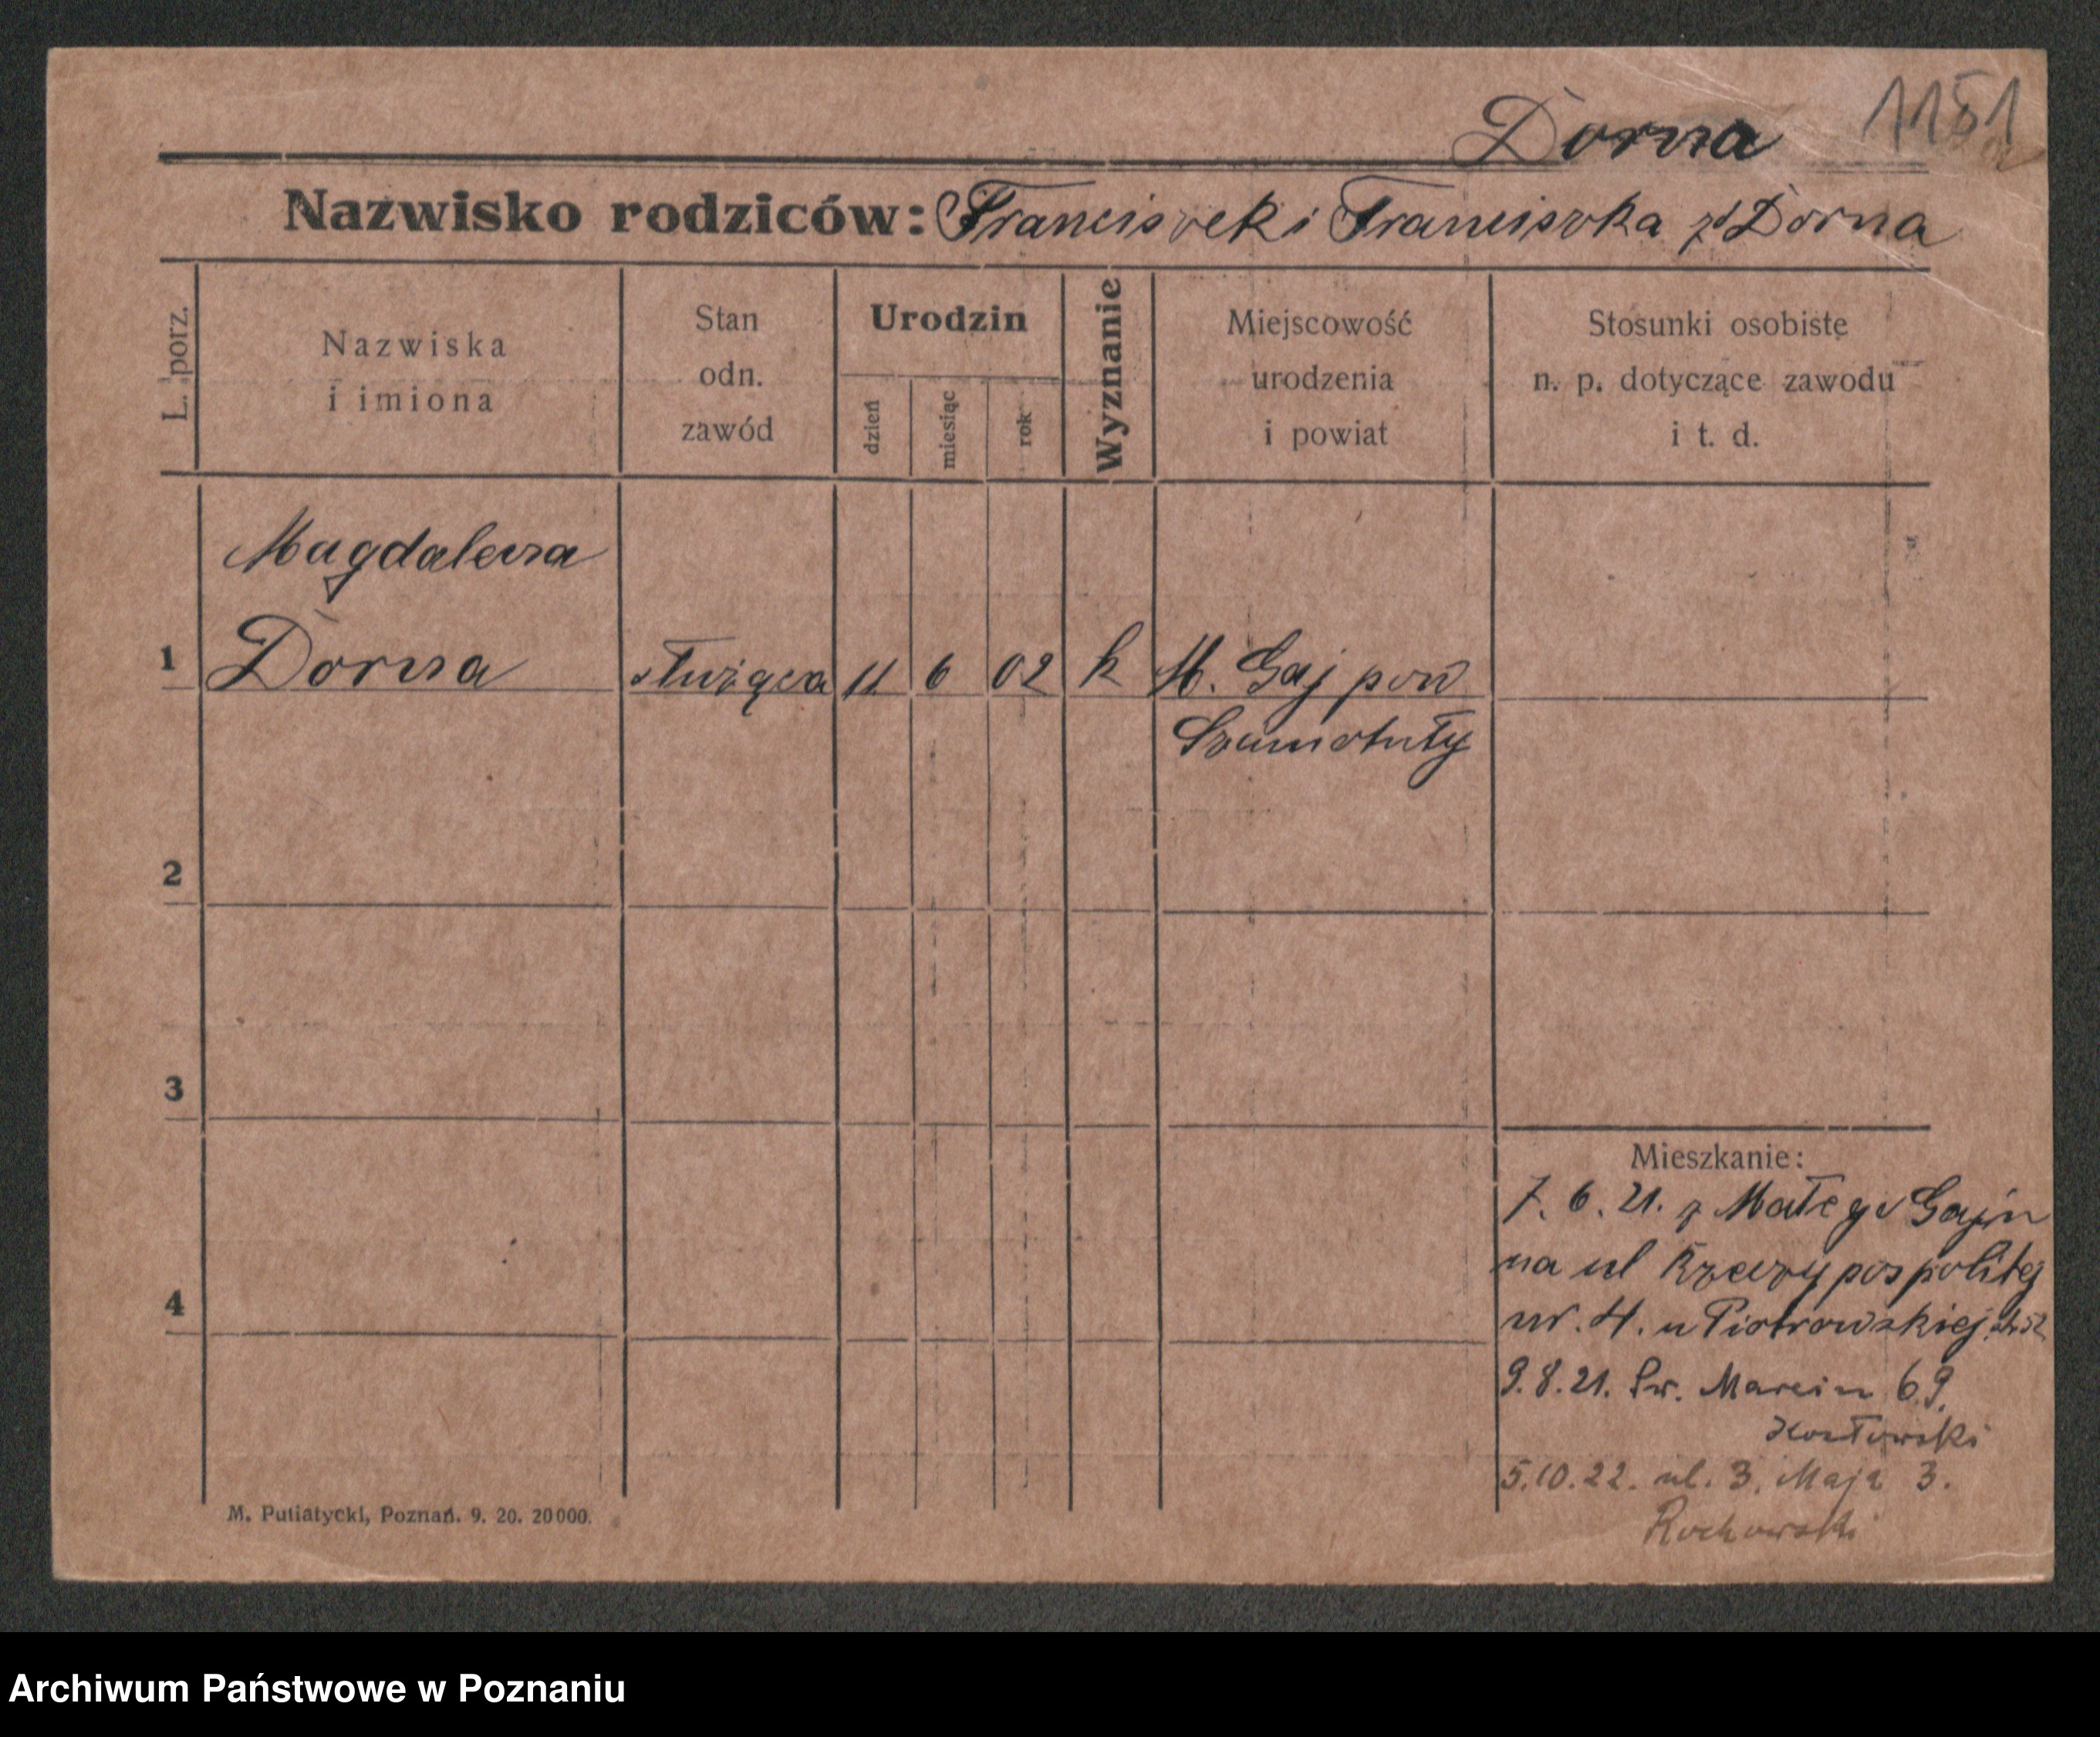 Dorna
1151
Nazwisko rodziców: Franciszek i Franciszka zd Dorna
L. porz.
Nazwiska
i imiona
Stan
odn.
zawód
Urodzin
dzień
miesiąc
rok
Wyznanie
Miejscowość
urodzenia
i powiat
Stosunki osobiste
n. p. dotyczące zawodu
i t. d.
Magdalena
1 Dorna służąca 11 6 02 k M. Gaj pow
Szamotuły
2
3
4
Mieszkanie:
7. 6. 21. z Małego Gaju
na ul Rzeczypospolitej
nr. 4. u Piotrowskiej
9.8.21. Św. Marcin 69.
5.10.22. ul. 3. Maja 3.
Rochowski
M. Putiatycki, Poznań. 9. 20. 20000.
Archiwum Państwowe w Poznaniu